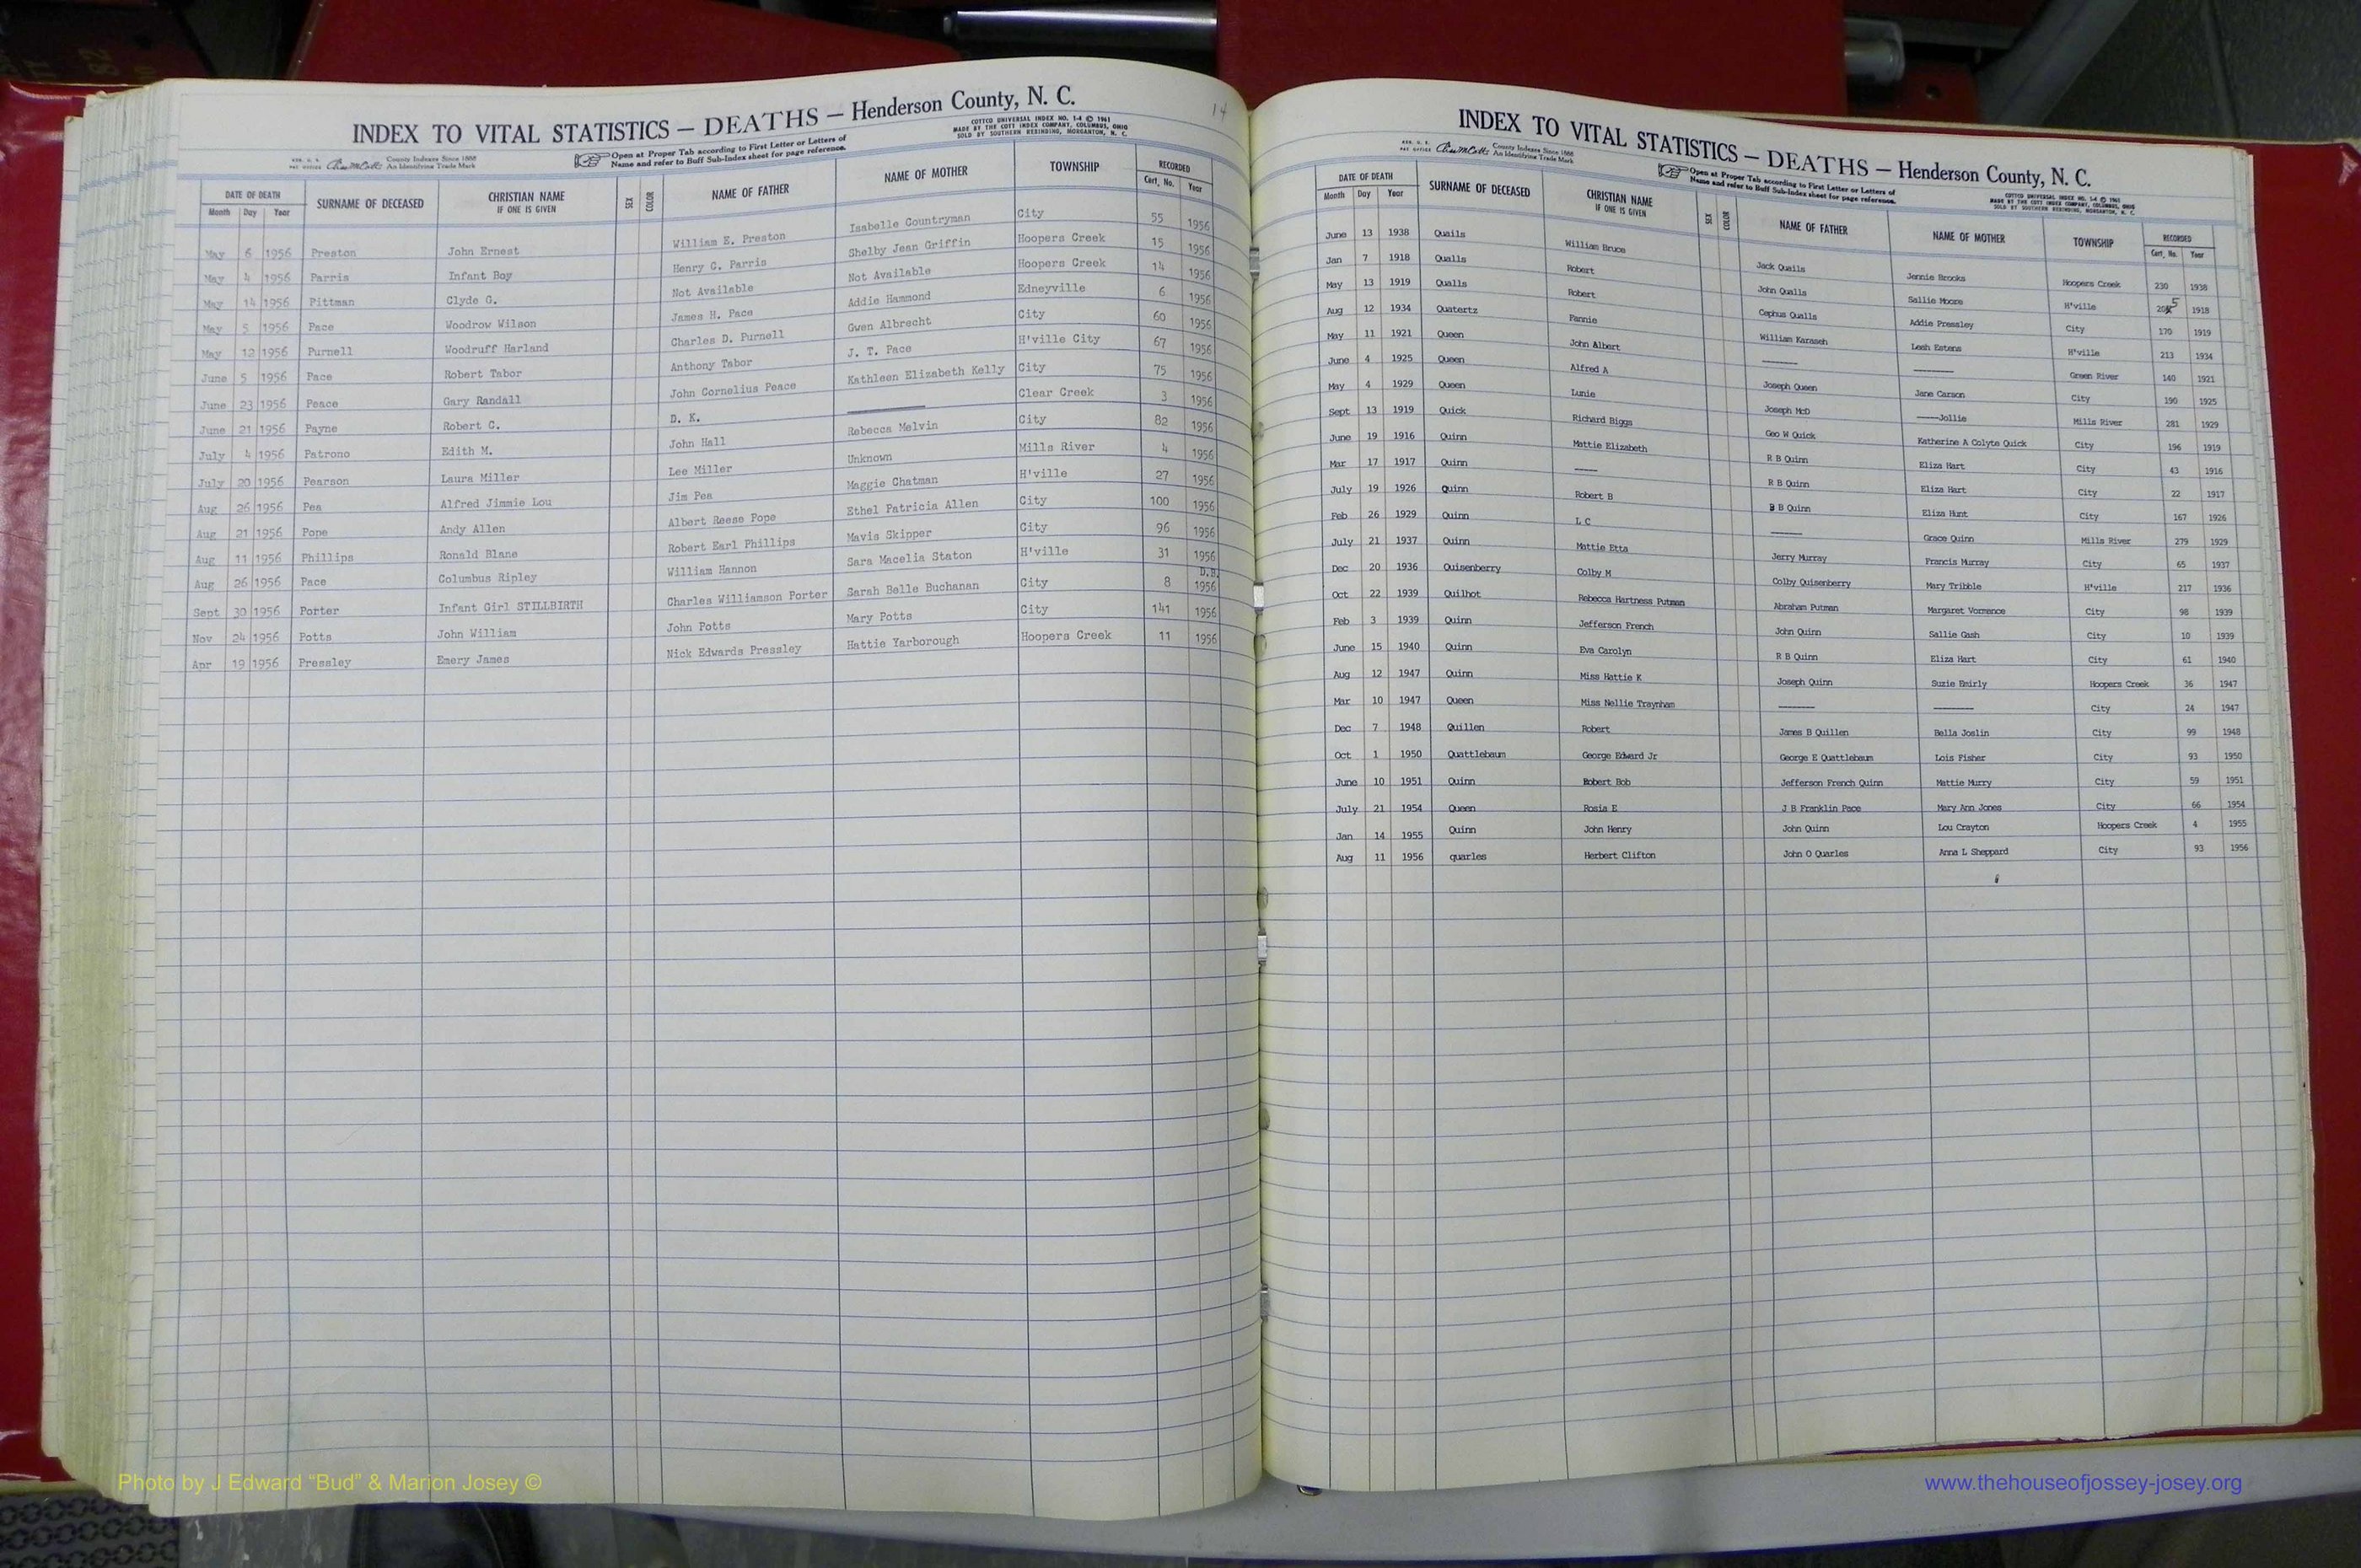 14
INDEX TO VITAL STATISTICS — DEATHS — Henderson County, N. C.
COTTCO UNIVERSAL INDEX NO. 1-4 © 1961
MADE BY THE COTT INDEX COMPANY, COLUMBUS, OHIO
SOLD BY SOUTHERN REBINDING, MORGANTON, N. C.
REG. U. S. PAT. OFFICE County Indexes Since 1888 An Identifying Trade Mark
Open at Proper Tab according to First Letter or Letters of
Name and refer to Buff Sub-Index sheet for page reference.
DATE OF DEATH Month Day Year SURNAME OF DECEASED CHRISTIAN NAME IF ONE IS GIVEN SEX COLOR NAME OF FATHER NAME OF MOTHER TOWNSHIP RECORDED Cert. No. Year
May 6 1956 Preston John Ernest William E. Preston Isabelle Countryman City 55 1956
May 4 1956 Parris Infant Boy Henry G. Parris Shelby Jean Griffin Hoopers Creek 15 1956
May 14 1956 Pittman Clyde G. Not Available Not Available Hoopers Creek 14 1956
May 5 1956 Pace Woodrow Wilson James H. Pace Addie Hammond Edneyville 6 1956
May 12 1956 Purnell Woodruff Harland Charles D. Purnell Gwen Albrecht City 60 1956
June 5 1956 Pace Robert Tabor Anthony Tabor J. T. Pace H'ville City 67 1956
June 23 1956 Peace Gary Randall John Cornelius Peace Kathleen Elizabeth Kelly City 75 1956
June 21 1956 Payne Robert C. D. K. ———— Clear Creek 3 1956
July 4 1956 Patrono Edith M. John Hall Rebecca Melvin City 82 1956
July 20 1956 Pearson Laura Miller Lee Miller Unknown Mills River 4 1956
Aug 26 1956 Pea Alfred Jimmie Lou Jim Pea Maggie Chatman H'ville 27 1956
Aug 21 1956 Pope Andy Allen Albert Reese Pope Ethel Patricia Allen City 100 1956
Aug 11 1956 Phillips Ronald Blane Robert Earl Phillips Mavis Skipper City 96 1956
Aug 26 1956 Pace Columbus Ripley William Hannon Sara Macelia Staton H'ville 31 1956
Sept 30 1956 Porter Infant Girl STILLBIRTH Charles Williamson Porter Sarah Belle Buchanan City 8 D.B. 1956
Nov 24 1956 Potts John William John Potts Mary Potts City 141 1956
Apr 19 1956 Pressley Emery James Nick Edwards Pressley Hattie Yarborough Hoopers Creek 11 1956
INDEX TO VITAL STATISTICS — DEATHS — Henderson County, N. C.
REG. U. S. PAT. OFFICE County Indexes Since 1888 An Identifying Trade Mark
Open at Proper Tab according to First Letter or Letters of
Name and refer to Buff Sub-Index sheet for page reference.
COTTCO UNIVERSAL INDEX NO. 1-4 © 1961
MADE BY THE COTT INDEX COMPANY, COLUMBUS, OHIO
SOLD BY SOUTHERN REBINDING, MORGANTON, N. C.
DATE OF DEATH Month Day Year SURNAME OF DECEASED CHRISTIAN NAME IF ONE IS GIVEN SEX COLOR NAME OF FATHER NAME OF MOTHER TOWNSHIP RECORDED Cert. No. Year
June 13 1938 Quails William Bruce Jack Quails Jennie Brooks Hoopers Creek 230 1938
Jan 7 1918 Qualls Robert John Qualls Sallie Moore H'ville 205 1918
May 13 1919 Qualls Robert Cephus Qualls Addie Pressley City 170 1919
Aug 12 1934 Quatertz Fannie William Karaseh Leah Estens H'ville 213 1934
May 11 1921 Queen John Albert ———— ———— Green River 140 1921
June 4 1925 Queen Alfred A Joseph Queen Jane Carson City 190 1925
May 4 1929 Queen Lunie Joseph McD ——Jollie Mills River 281 1929
Sept 13 1919 Quick Richard Biggs Geo W Quick Katherine A Colyte Quick City 196 1919
June 19 1916 Quinn Mattie Elizabeth R B Quinn Eliza Hart City 43 1916
Mar 17 1917 Quinn ——— R B Quinn Eliza Hart City 22 1917
July 19 1926 Quinn Robert B B B Quinn Eliza Hunt City 167 1926
Feb 26 1929 Quinn L C ———— Grace Quinn Mills River 279 1929
July 21 1937 Quinn Mattie Etta Jerry Murray Francis Murray City 65 1937
Dec 20 1936 Quisenberry Colby M Colby Quisenberry Mary Tribble H'ville 217 1936
Oct 22 1939 Quilhot Rebecca Hartness Putman Abraham Putman Margaret Vormence City 98 1939
Feb 3 1939 Quinn Jefferson French John Quinn Sallie Gash City 10 1939
June 15 1940 Quinn Eva Carolyn R B Quinn Eliza Hart City 61 1940
Aug 12 1947 Quinn Miss Hattie K Joseph Quinn Suzie Emirly Hoopers Creek 36 1947
Mar 10 1947 Queen Miss Nellie Traynham ———— ———— City 24 1947
Dec 7 1948 Quillen Robert James B Quillen Bella Joslin City 99 1948
Oct 1 1950 Quattlebaum George Edward Jr George E Quattlebaum Lois Fisher City 93 1950
June 10 1951 Quinn Robert Bob Jefferson French Quinn Mattie Murry City 59 1951
July 21 1954 Queen Rosia E J B Franklin Pace Mary Ann Jones City 66 1954
Jan 14 1955 Quinn John Henry John Quinn Lou Crayton Hoopers Creek 4 1955
Aug 11 1956 quarles Herbert Clifton John O Quarles Anna L Sheppard City 93 1956
Photo by J Edward “Bud” & Marion Josey ©
www.thehouseofjossey-josey.org